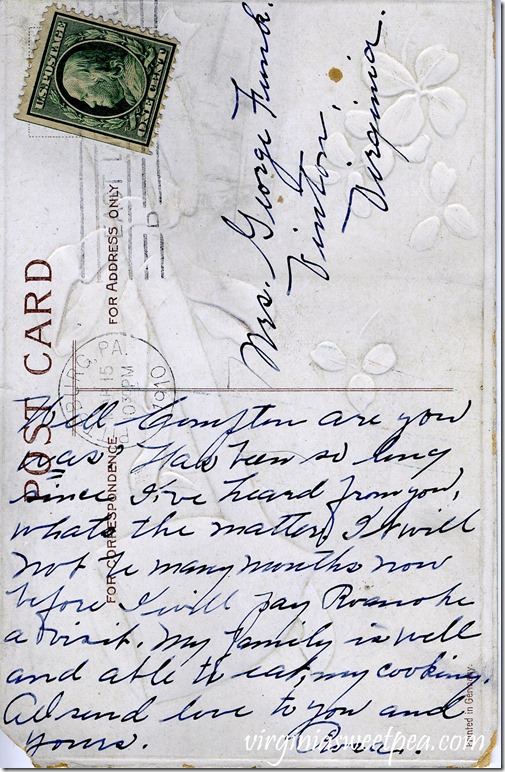 U.S. POSTAGE
ONE CENT
POST CARD
FOR ADDRESS ONLY
FOR CORRESPONDENCE
BURG, PA.
15
10 PM
1910
Mrs. George Funk.
Vinton,
Virginia.
Well Compton are you
as Has been so long
since I've heard from you,
whats the matter. It will
not be many months now
before I will pay Roanoke
a visit. My family is well
and able to eat, my cooking.
All send love to you and
yours.
Printed in Germany.
virginiasweetpea.com